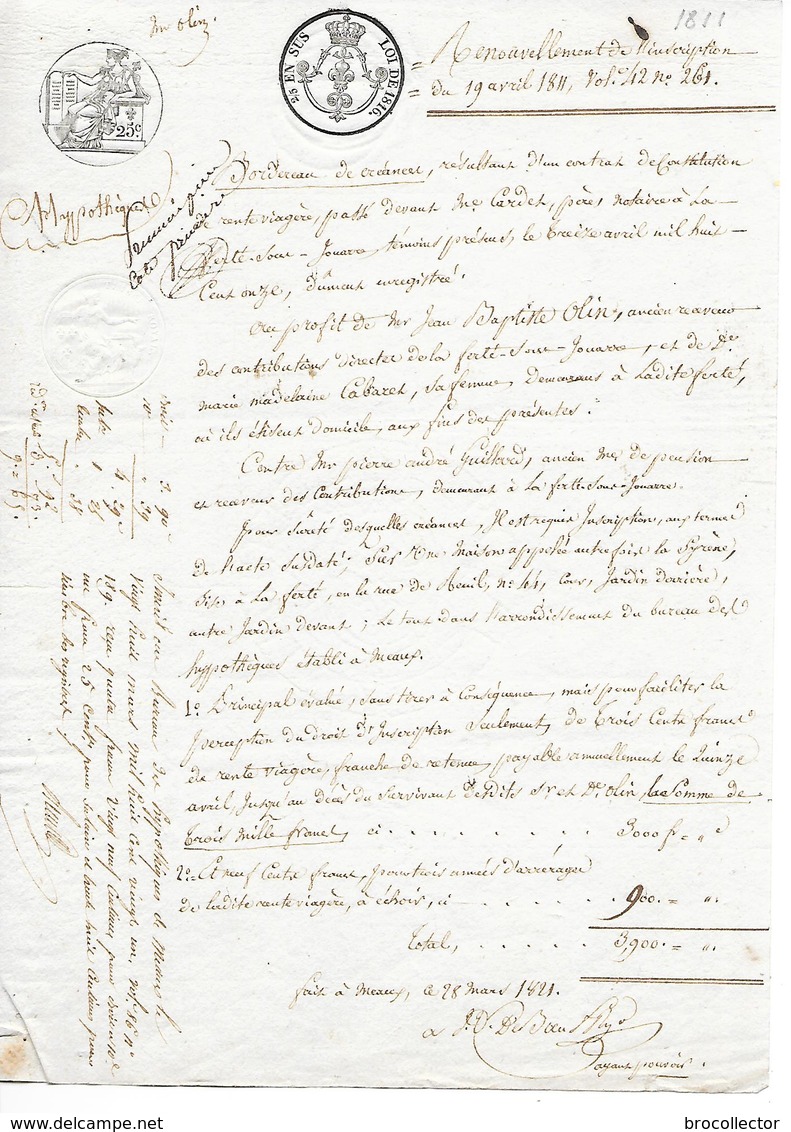 Mr Olin
1811
2/5 EN SUS LOI DE 1816.
25c
= Renouvellement de l'inscription
= du 19 avril 1811, Vol. 42 no 261.
Hypothèques
Bordereau de créances, résultant d'un contrat de Constitution
de rente viagère, passé devant Me Cardet, père, notaire à La
ferté-Sous-Jouarre, témoins présens, le treize avril mil huit
Cent onze, dûment enregistré.
Au profit de Mr Jean Baptiste Olin, ancien receveur
des contributions directes de la ferté-Sous-Jouarre, et de De
marie madelaine Cabaret, sa femme, demeurans à Ladite ferté,
où ils élisent domicile, aux fins des présentes.
Contre Mr pierre andré Guillard, ancien Me de pension
et receveur des Contributions, demeurant à La ferté-Sous-Jouarre.
Pour sûreté desquelles créances, Il est requis Inscription, aux termes
de l'acte Susdaté, Sur Une maison appelée autrefois la Syrène,
Sise à La ferté, en la rue de Reuil, no 44, Cour, Jardin derrière,
autre Jardin devant; Le tout dans l'arrondissement du bureau des
hypothèques établi à Meaux.
1o Principal évalué, Sans tirer à Conséquence, mais pour faciliter la
perception du droit d'Inscription Seulement, de Trois Cents francs
de rente viagère, franche de retenue, payable annuellement le Quinze
avril, Jusqu'au décès du Survivant desdits Sr et De Olin, la Somme de
Trois Mille francs, ci . . . . . . . . . 3000 f = " c
2o = Et neuf Cents francs, pour trois années d'arrérages
de ladite rente viagère, à échoir, ci = . . . . . . . 900. = ".
Total, . . . . . . 3,900. = ".
fait à Meaux, ce 28 mars 1821.
ayant pouvoir.
Inscrit au Bureau des hypothèques de Meaux le
vingt huit mars mil huit cent vingt un, vol. 86 no
189. reçu quatre francs vingt neuf centimes pour droit et 10e
un franc 25 cent. pour salaire et trente huit centimes pour
timbre des registres
www.delcampe.net
brocollector